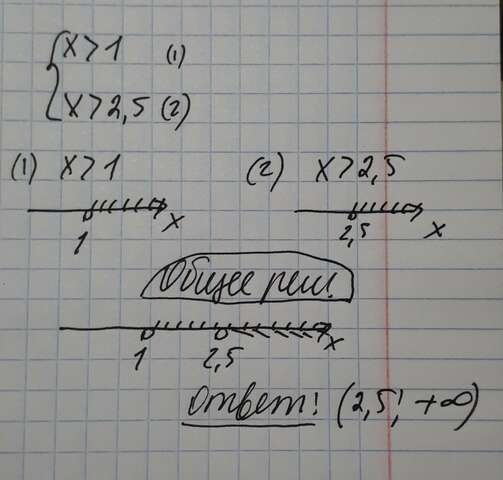 x > 1 (1)
x > 2,5 (2)
(1) x > 1
(2) x > 2,5
1 x
2,5 x
Общее реш.
1 2,5 x
Ответ: (2,5; +∞)